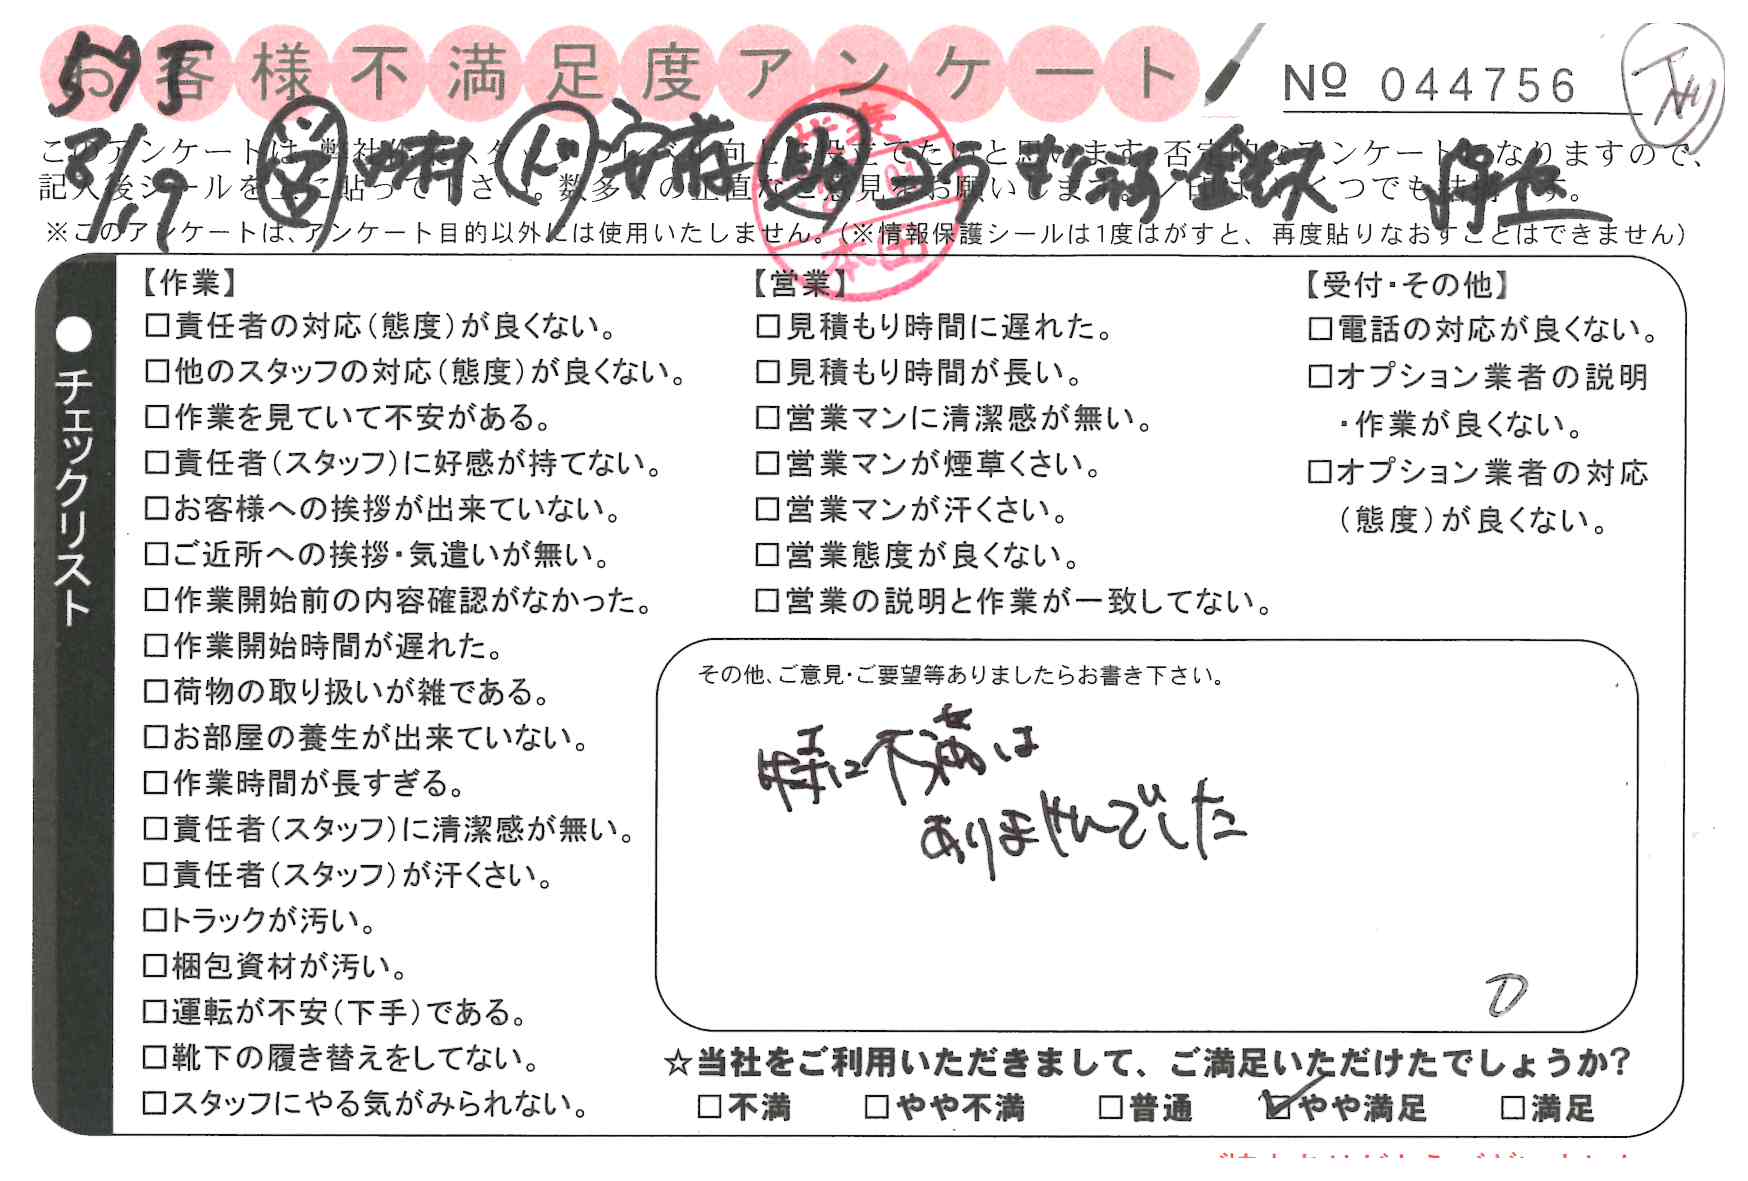 お客様不満足度アンケート
№ 044756
8/19
※このアンケートは、アンケート目的以外には使用いたしません。（※情報保護シールは1度はがすと、再度貼りなおすことはできません）
本田
●チェックリスト
【作業】
□責任者の対応（態度）が良くない。
□他のスタッフの対応（態度）が良くない。
□作業を見ていて不安がある。
□責任者（スタッフ）に好感が持てない。
□お客様への挨拶が出来ていない。
□ご近所への挨拶・気遣いが無い。
□作業開始前の内容確認がなかった。
□作業開始時間が遅れた。
□荷物の取り扱いが雑である。
□お部屋の養生が出来ていない。
□作業時間が長すぎる。
□責任者（スタッフ）に清潔感が無い。
□責任者（スタッフ）が汗くさい。
□トラックが汚い。
□梱包資材が汚い。
□運転が不安（下手）である。
□靴下の履き替えをしてない。
□スタッフにやる気がみられない。
【営業】
□見積もり時間に遅れた。
□見積もり時間が長い。
□営業マンに清潔感が無い。
□営業マンが煙草くさい。
□営業マンが汗くさい。
□営業態度が良くない。
□営業の説明と作業が一致してない。
【受付・その他】
□電話の対応が良くない。
□オプション業者の説明
・作業が良くない。
□オプション業者の対応
（態度）が良くない。
その他、ご意見・ご要望等ありましたらお書き下さい。
特に不満は
ありませんでした
☆当社をご利用いただきまして、ご満足いただけたでしょうか？
□不満 □やや不満 □普通 ☑やや満足 □満足